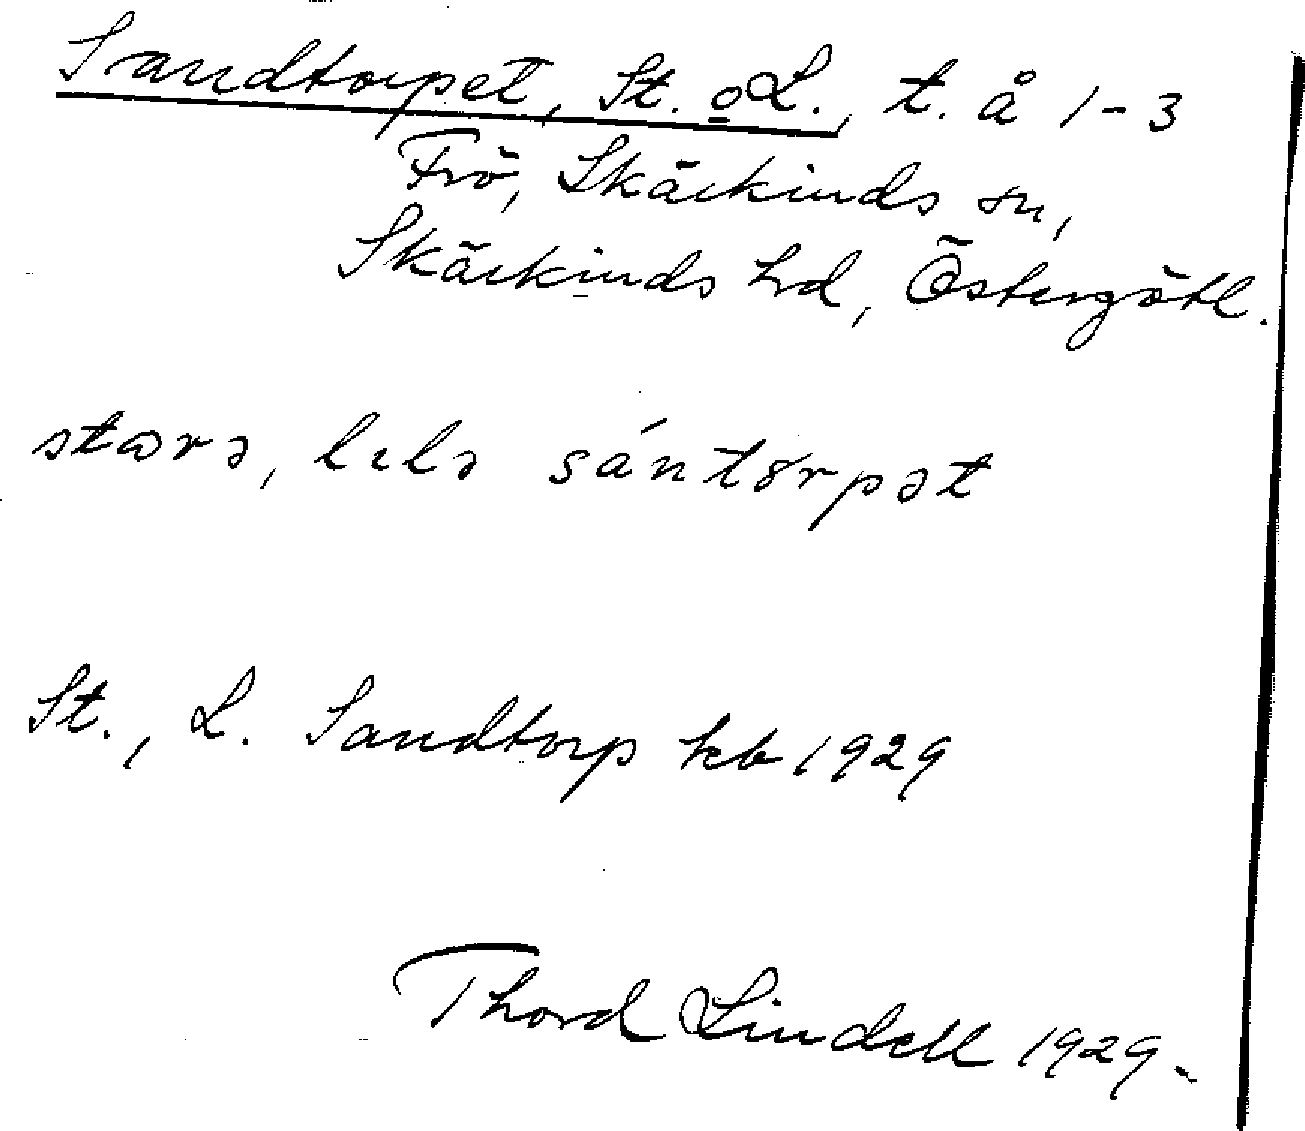 Sandtorpet, St. o L., t. å 1-3
Frö, Skärkinds sn,
Skärkinds hd, Östergötl.
stɷrə, lɩlə sántɵrpət
St., L. Sandtorp kb 1929
Thord Lindell 1929.